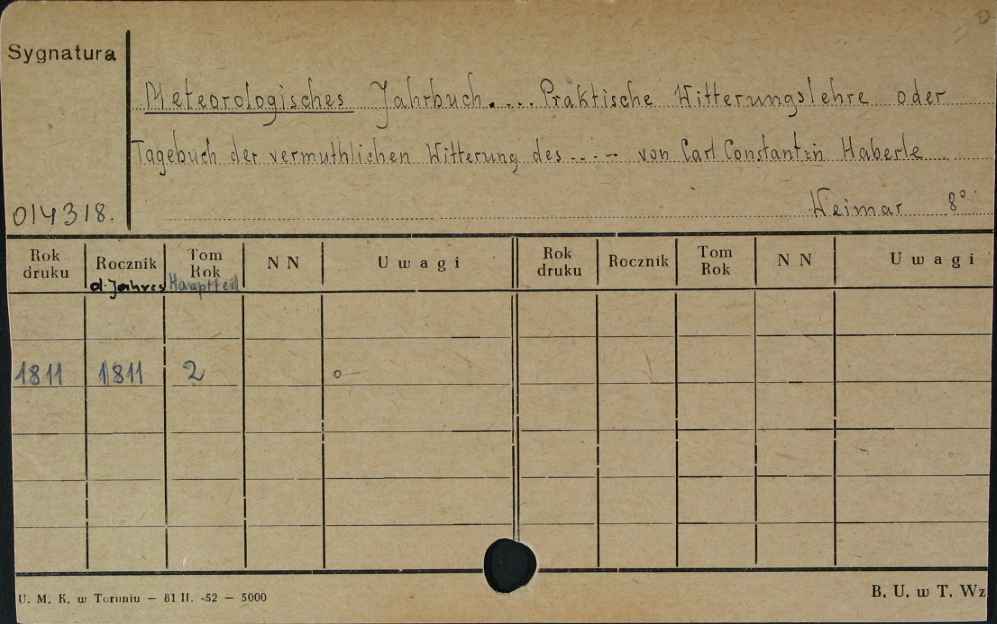 Sygnatura
Meteorologisches Jahrbuch. ... Praktische Witterungslehre oder
Tagebuch der vermuthlichen Witterung des ... - von Carl Constantin Haberle
014318. Weimar 8°
Rok druku Rocznik Tom Rok NN Uwagi Rok druku Rocznik Tom Rok NN Uwagi
d. Jahres Hauptteil
1811 1811 2 o
U. M. K. w Toruniu — 81 II. -52 — 5000
B. U. w T. Wz